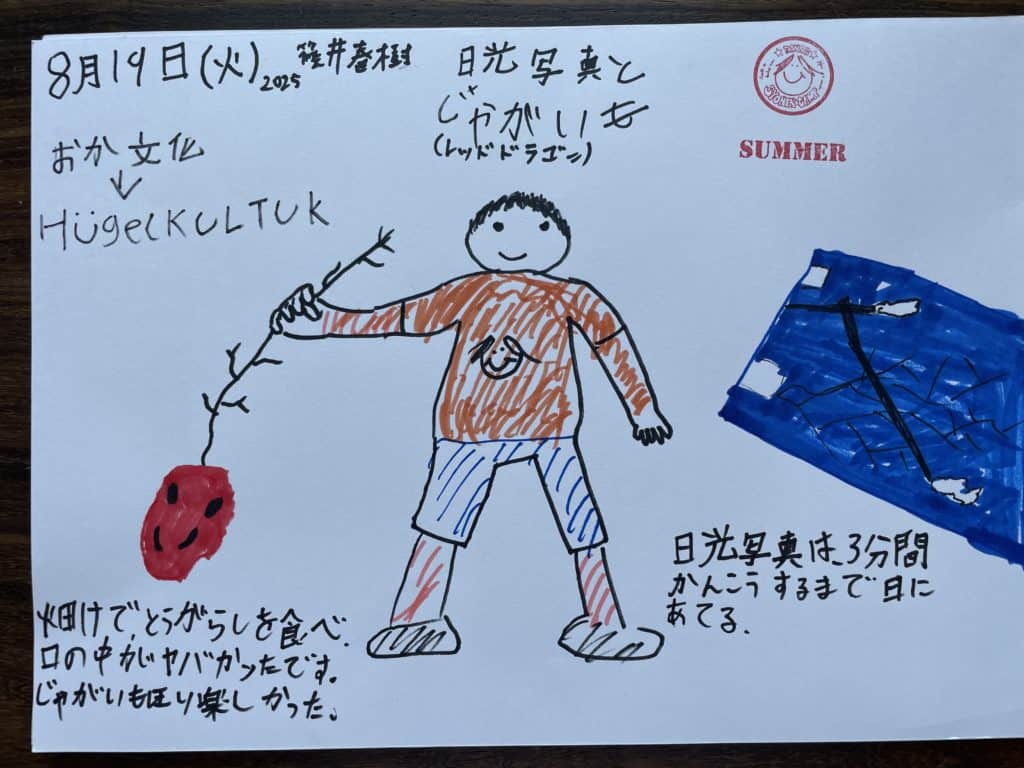 8月19日(火)2025
笹井春樹
日光写真と
じゃがいも
(レッドドラゴン)
SUMMER
おか文化
↓
HügelKULTUk
畑けで、とうがらしを食べ、
口の中がヤバかったです。
じゃがいもほり楽しかった。
日光写真は、3分間
かんこうするまで日に
あてる、